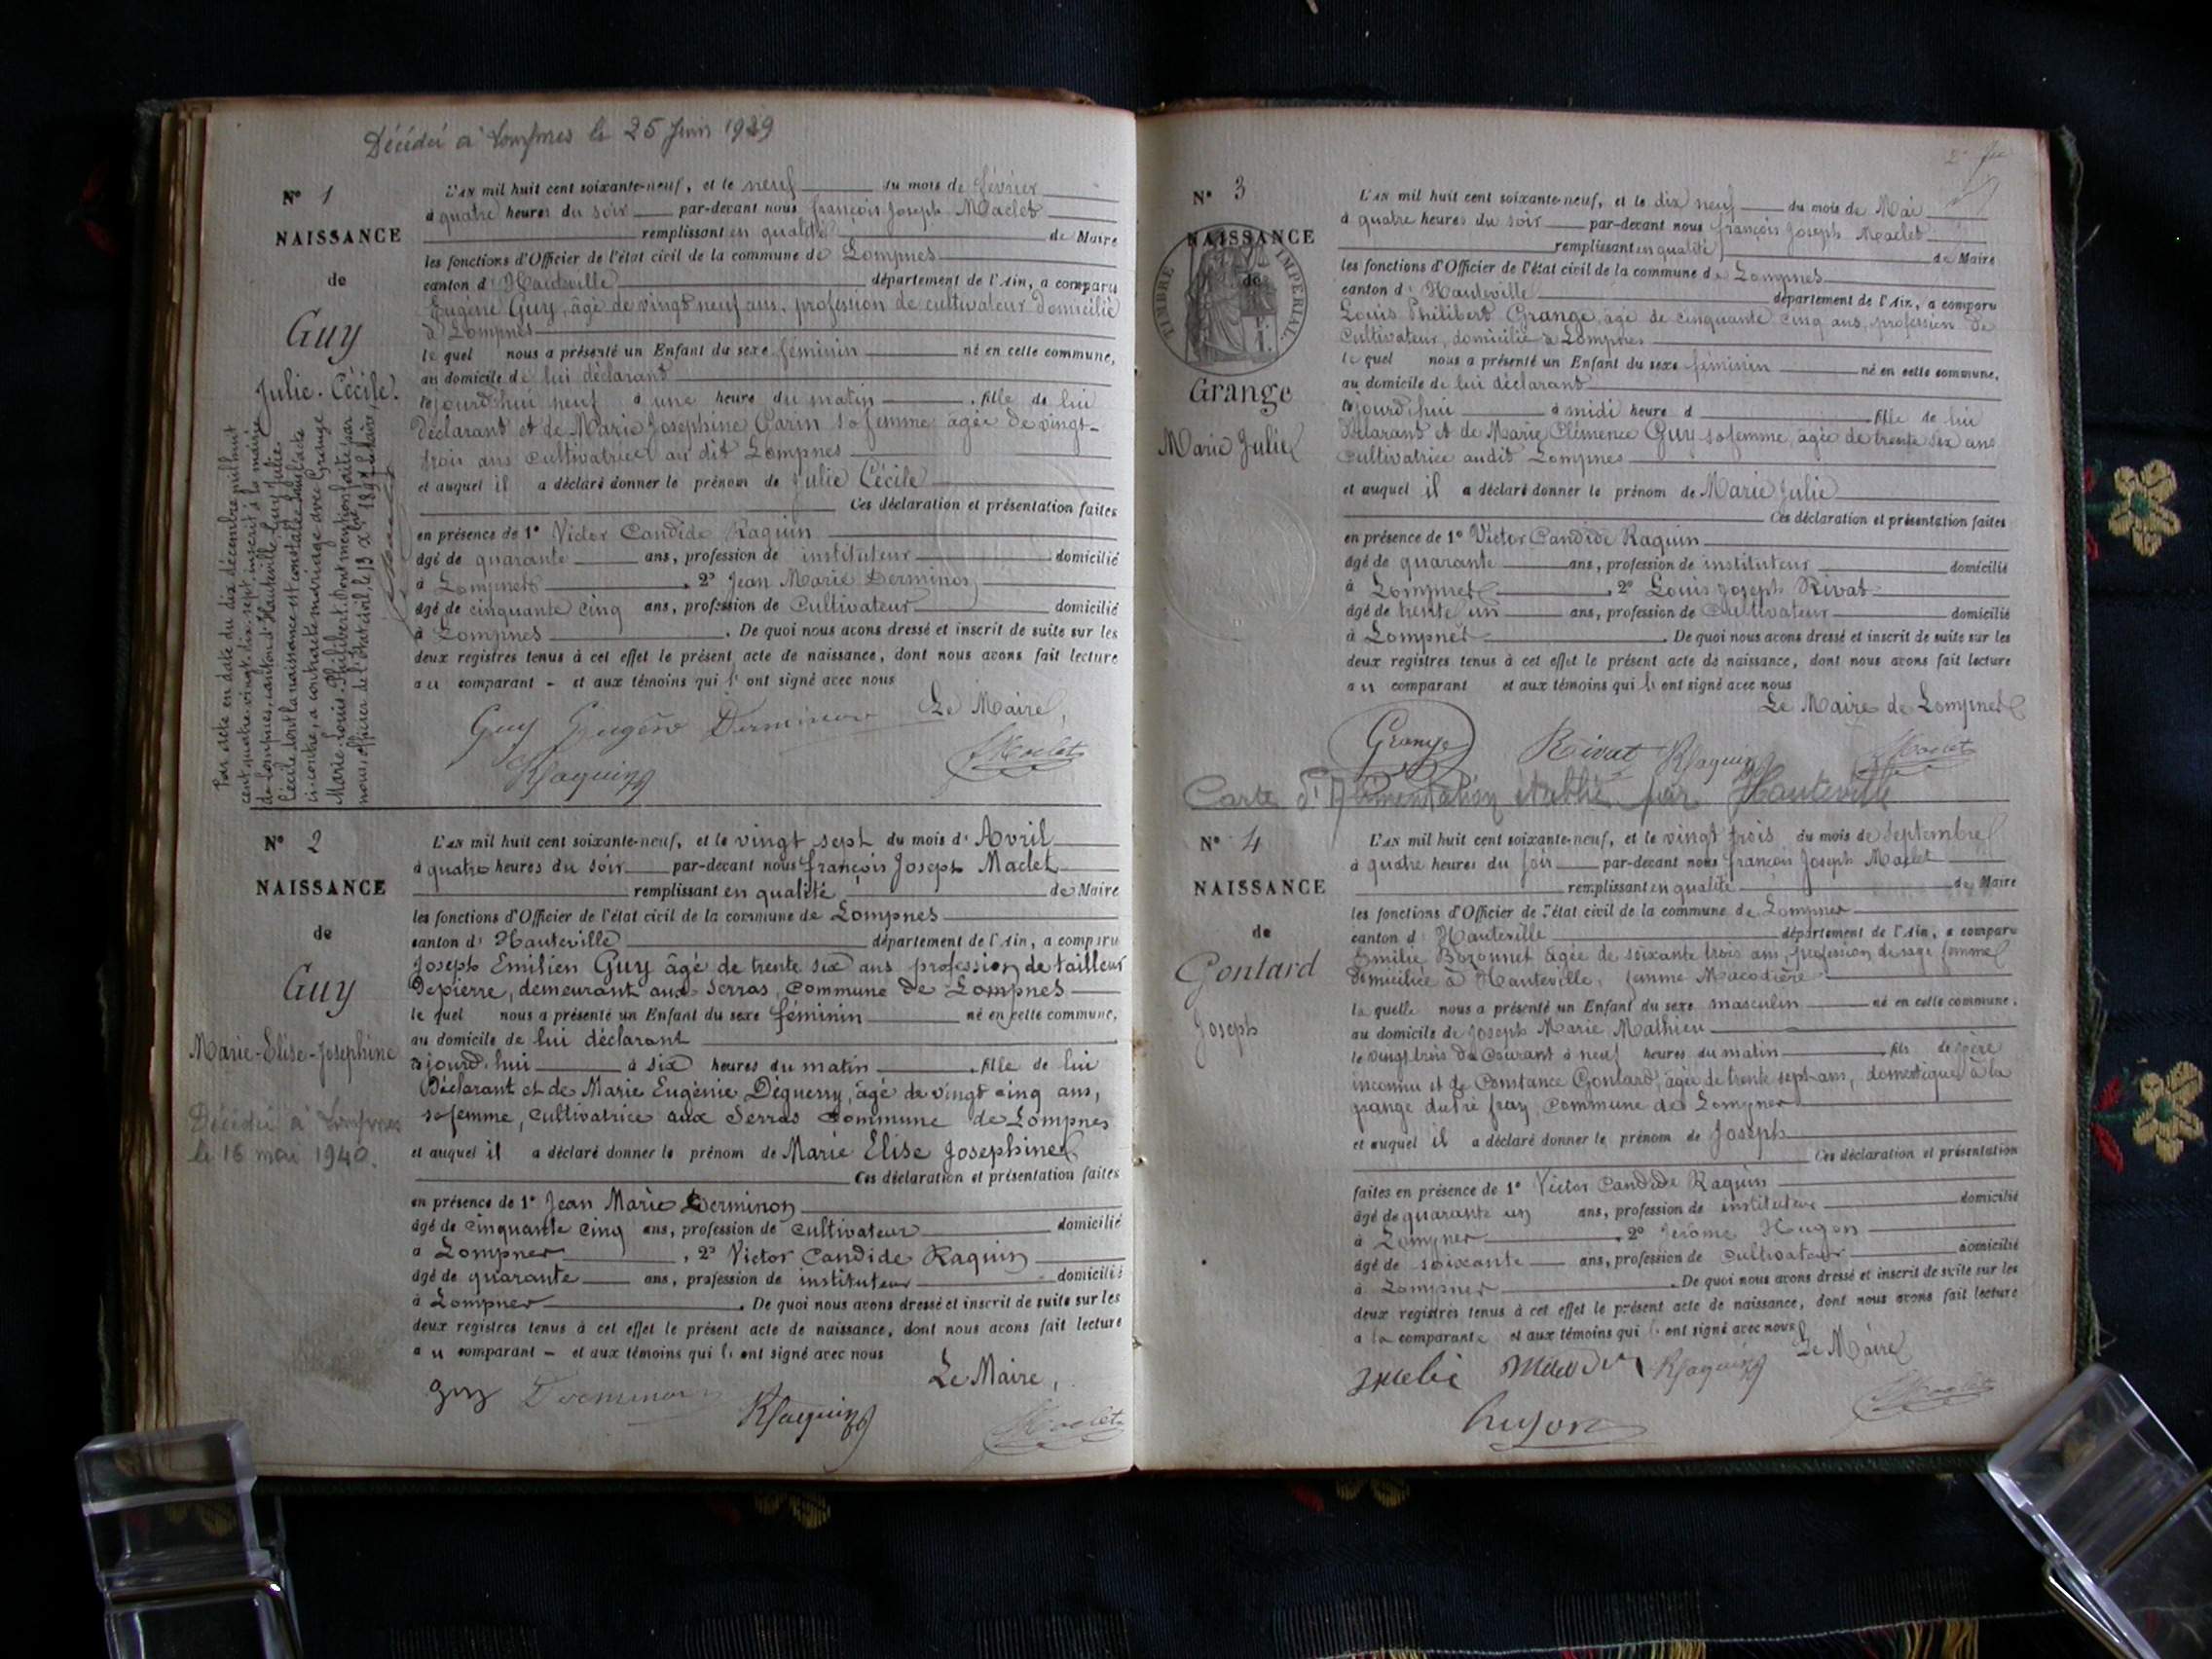 Décédée à Lompnes le 25 Juin 1929
N° 1
NAISSANCE
de
Guy
Julie. Cécile.
Par acte en date du dix décembre mil huit
cent quatre-vingt-dix-sept inscrit à la mairie
de Lompnes, canton d'Hauteville, Guy Julie
Cécile dont la naissance est constatée dans l'acte
ci-contre, a contracté mariage avec Grange
Marie-Louis-Philibert. Dont mention faite par
nous, officier de l'état civil, le 13 Xbre 1897. Le Maire,
L'AN mil huit cent soixante-neuf, et le neuf du mois de février
à quatre heures du soir par-devant nous françois Joseph Maclet
remplissant en qualité de Maire
les fonctions d'Officier de l'état civil de la commune de Lompnes
canton d'Hauteville département de l'Ain, a comparu
Eugène Guy, âgé de vingt neuf ans, profession de cultivateur domicilié
à Lompnes
le quel nous a présenté un Enfant du sexe féminin né en cette commune,
au domicile de lui déclarant
aujourd'hui neuf à une heure du matin, fille de lui
Déclarant et de Marie Josephine Carin sa femme âgée de vingt-
trois ans cultivatrice au dit Lompnes
et auquel il a déclaré donner le prénom de Julie Cécile
Ces déclaration et présentation faites
en présence de 1° Victor Candide Raquin
âgé de quarante ans, profession de instituteur domicilié
à Lompnes, 2° Jean Marie Derminon
âgé de cinquante cinq ans, profession de Cultivateur domicilié
à Lompnes. De quoi nous avons dressé et inscrit de suite sur les
deux registres tenus à cet effet le présent acte de naissance, dont nous avons fait lecture
au comparant - et aux témoins qui l' ont signé avec nous
Le Maire,
Guy Eugène Derminon
Raquin Maclet
N° 2
NAISSANCE
de
Guy
Marie-Elise-Josephine
Décédée à Lompnes
le 16 mai 1940.
L'AN mil huit cent soixante-neuf, et le vingt sept du mois d'Avril
à quatre heures du soir par-devant nous françois Joseph Maclet
remplissant en qualité de Maire
les fonctions d'Officier de l'état civil de la commune de Lompnes
canton d'Hauteville département de l'Ain, a comparu
Joseph Emilien Guy âgé de trente six ans profession de tailleur
de pierre, demeurant aux Serras, Commune de Lompnes
le quel nous a présenté un Enfant du sexe féminin né en cette commune,
au domicile de lui déclarant
aujourd'hui à six heures du matin, fille de lui
Déclarant et de Marie Eugénie Déguerry, âgé de vingt cinq ans,
sa femme, cultivatrice aux Serras Commune de Lompnes
et auquel il a déclaré donner le prénom de Marie Elise Josephine
Ces déclaration et présentation faites
en présence de 1° Jean Marie Derminon
âgé de cinquante cinq ans, profession de cultivateur domicilié
à Lompnes, 2° Victor Candide Raquin
âgé de quarante ans, profession de instituteur domicilié
à Lompnes. De quoi nous avons dressé et inscrit de suite sur les
deux registres tenus à cet effet le présent acte de naissance, dont nous avons fait lecture
au comparant - et aux témoins qui l' ont signé avec nous
Le Maire,
guy Derminon Raquin Maclet
N° 3
NAISSANCE
de
TIMBRE IMPERIAL
Grange
Marie Julie
L'AN mil huit cent soixante-neuf, et le dix neuf du mois de Mai
à quatre heures du soir par-devant nous françois Joseph Maclet
remplissant en qualité de Maire
les fonctions d'Officier de l'état civil de la commune de Lompnes
canton d'Hauteville département de l'Ain, a comparu
Louis Philibert Grange, âgé de cinquante cinq ans, profession de
Cultivateur, domicilié à Lompnes
le quel nous a présenté un Enfant du sexe féminin né en cette commune,
au domicile de lui déclarant
aujourd'hui à midi heure d fille de lui
Déclarant et de Marie Clémence Guy sa femme âgée de trente six ans
Cultivatrice audit Lompnes
et auquel il a déclaré donner le prénom de Marie Julie
Ces déclaration et présentation faites
en présence de 1° Victor Candide Raquin
âgé de quarante ans, profession de instituteur domicilié
à Lompnes, 2° Louis Joseph Rivat
âgé de trente un ans, profession de Cultivateur domicilié
à Lompnes. De quoi nous avons dressé et inscrit de suite sur les
deux registres tenus à cet effet le présent acte de naissance, dont nous avons fait lecture
au comparant et aux témoins qui l' ont signé avec nous
Le Maire de Lompnes
Grange Rivat Raquin Maclet
Carte d'Alimentation établie par Hauteville
N° 4
NAISSANCE
de
Gontard
Joseph
L'AN mil huit cent soixante-neuf, et le vingt trois du mois de Septembre
à quatre heures du soir par-devant nous françois Joseph Maclet
remplissant en qualité de Maire
les fonctions d'Officier de l'état civil de la commune de Lompnes
canton d'Hauteville département de l'Ain, a comparu
Emilie Bozonnet âgée de soixante trois ans, profession de sage femme
domiciliée à Hauteville, femme Macodière
la quelle nous a présenté un Enfant du sexe masculin né en cette commune,
au domicile de Joseph Marie Mathieu
le vingt trois du Courant à neuf heures du matin, fils de père
inconnu et de Constance Gontard, âgée de trente sept ans, domestique à la
grange du fray, Commune de Lompnes
et auquel il a déclaré donner le prénom de Joseph
Ces déclaration et présentation
faites en présence de 1° Victor Candide Raquin
âgé de quarante un ans, profession de instituteur domicilié
à Lompnes, 2° Jérôme Hugon
âgé de soixante ans, profession de Cultivateur domicilié
à Lompnes. De quoi nous avons dressé et inscrit de suite sur les
deux registres tenus à cet effet le présent acte de naissance, dont nous avons fait lecture
a la comparante et aux témoins qui l' ont signé avec nous
Le Maire
Raquin Maclet
hugon